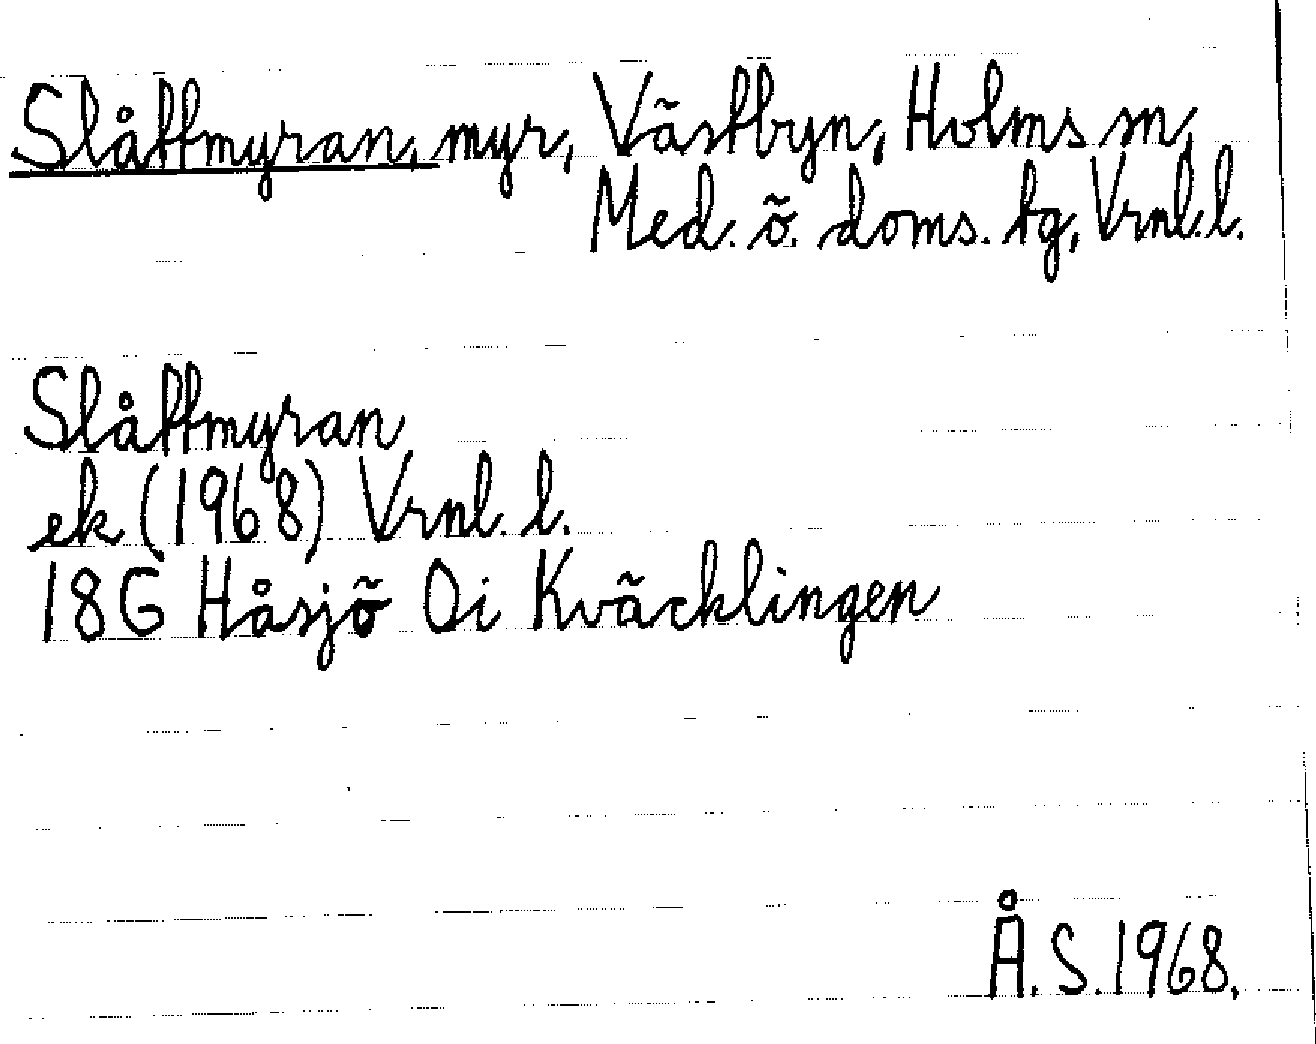 Slåttmyran, myr, Västbyn, Holms sn,
Med. ö. doms. tg, Vrnl. l.
Slåttmyran
ek (1968) Vrnl. l.
18G Håsjö Oi Kväcklingen
Å. S. 1968.